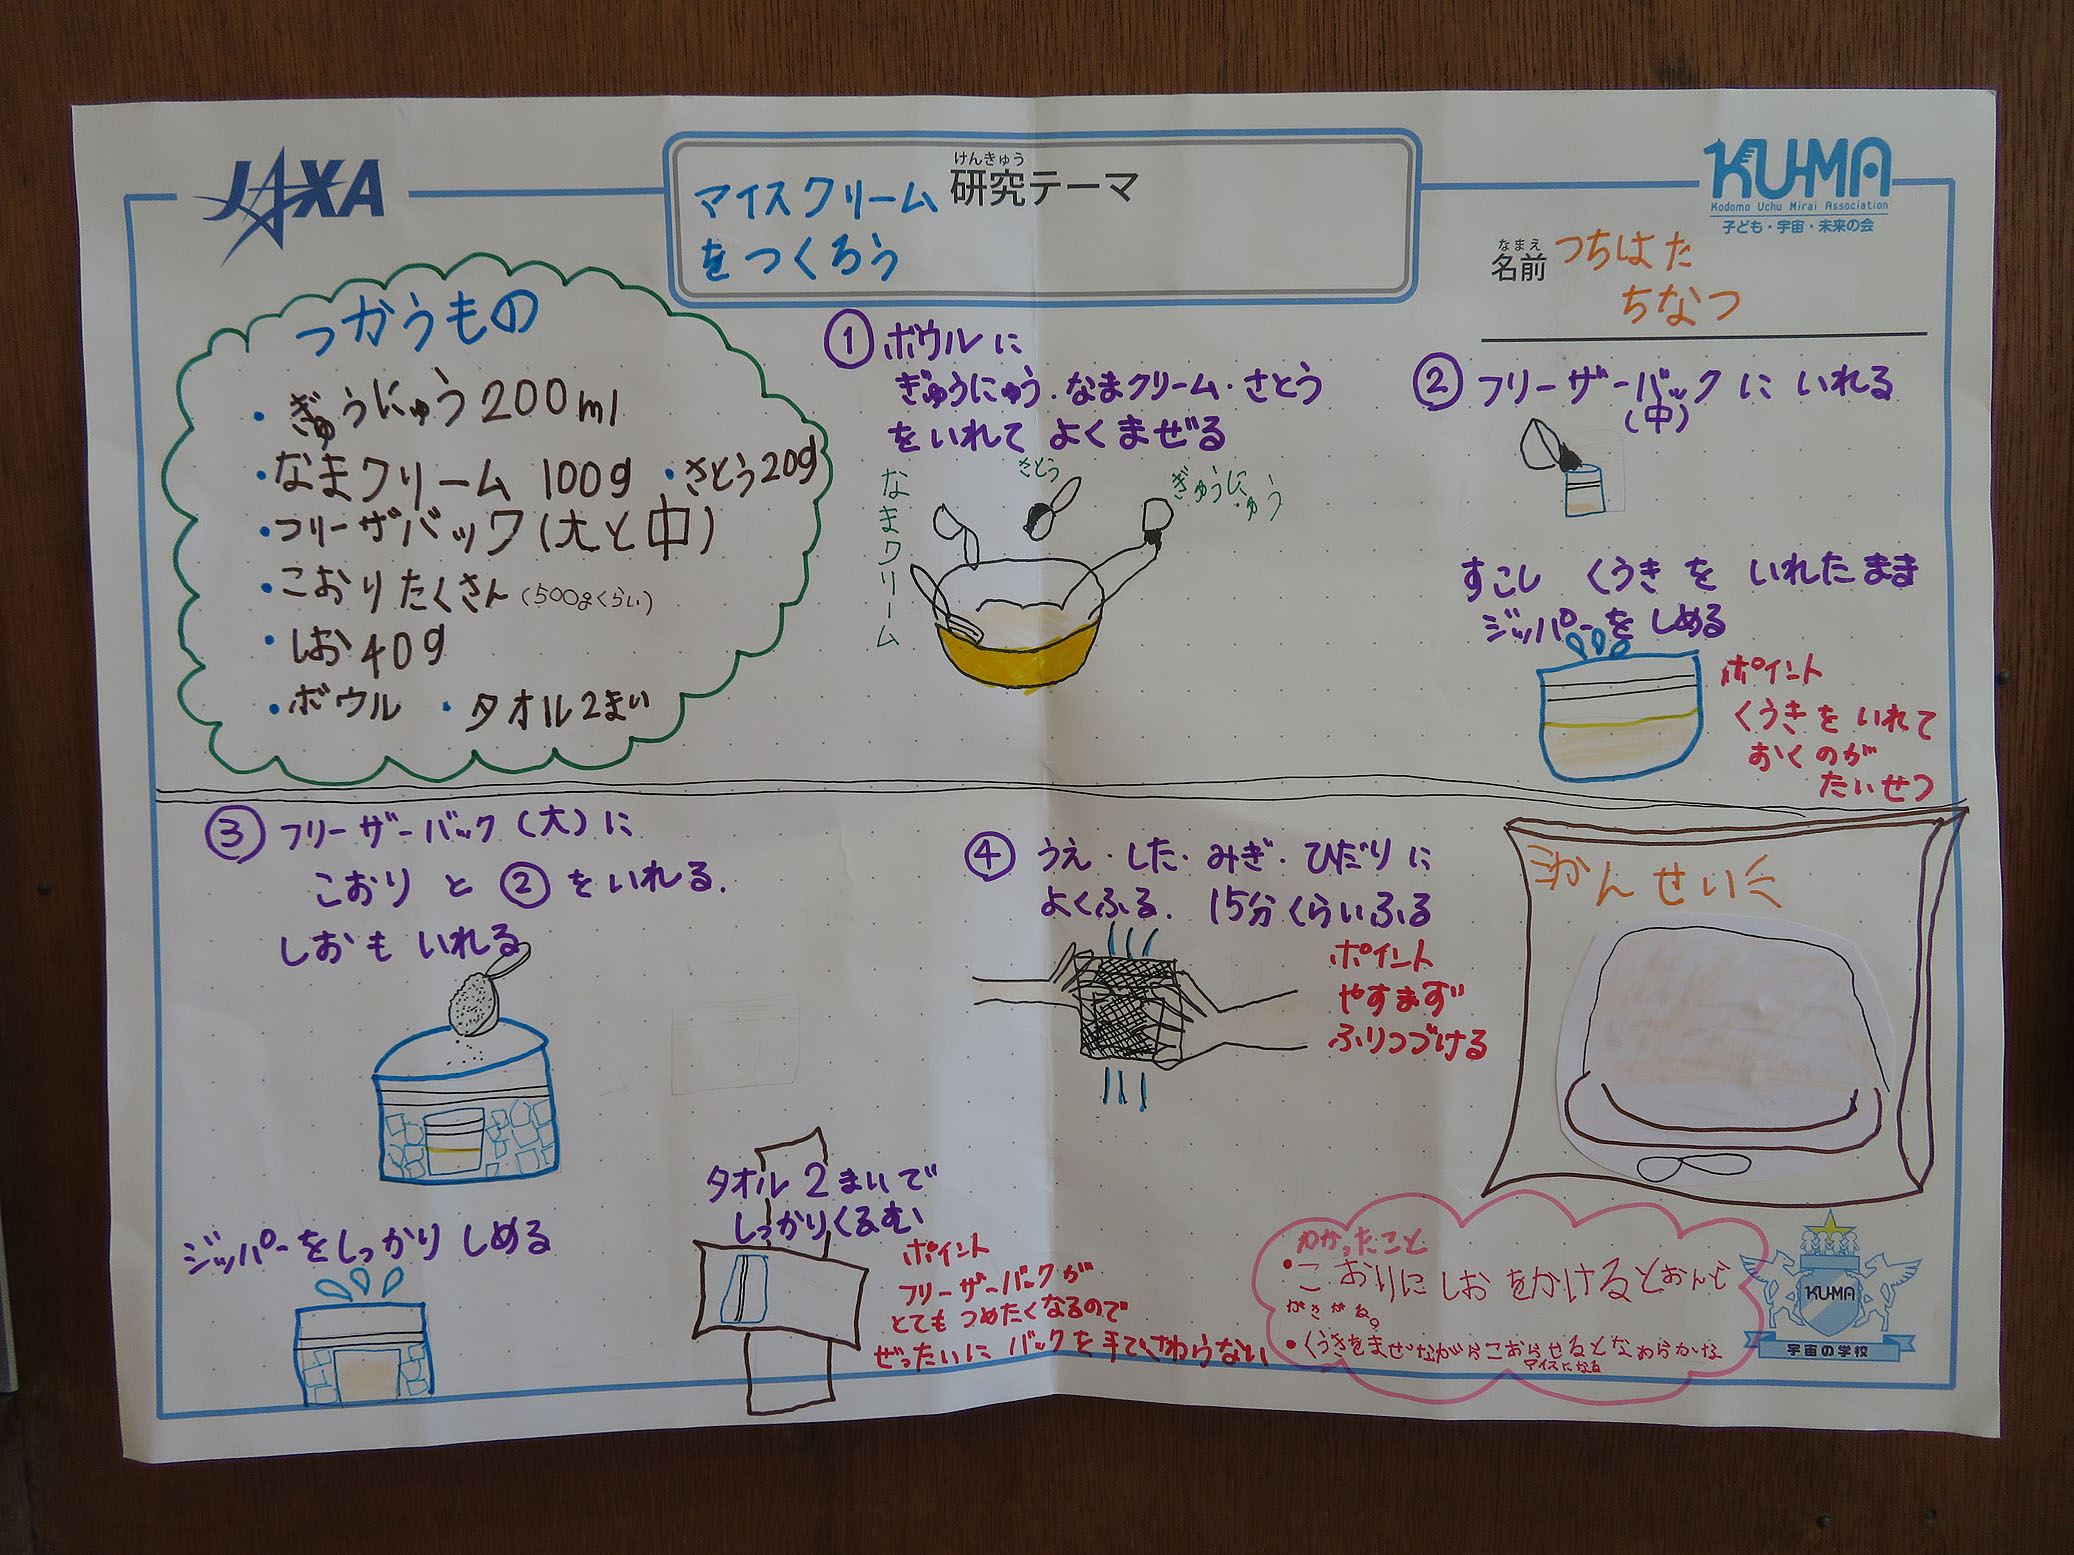 JAXA
けんきゅう
研究テーマ
マイスクリーム
をつくろう
KU-MA
Kodomo Uchu Mirai Association
子ども・宇宙・未来の会
なまえ
名前
つちはた
ちなつ
つかうもの
・ぎゅうにゅう200ml
・なまクリーム 100g ・さとう20g
・フリーザバック(大と中)
・こおりたくさん(500gくらい)
・しお40g
・ボウル ・タオル2まい
① ボウルに
ぎゅうにゅう・なまクリーム・さとう
をいれて よくまぜる
なまクリーム
さとう
ぎゅうにゅう
② フリーザーバックに いれる
(中)
すこし くうきを いれたまま
ジッパーを しめる
ポイント
くうきを いれて
おくのが
たいせつ
③ フリーザーバック(大)に
こおり と ② をいれる.
しおも いれる
ジッパーをしっかり しめる
タオル 2まいで
しっかりくるむ
ポイント
フリーザーバックが
とても つめたくなるので
ぜったいに バックを手でさわらない
④ うえ・した・みぎ・ひだりに
よくふる. 15分くらいふる
ポイント
やすまず
ふりつづける
かんせい
わかったこと
・こおりに しお をかけるとおんど
がさがる。
・くうきをまぜながらこおらせるとなめらかな
アイスになる
KU-MA
宇宙の学校